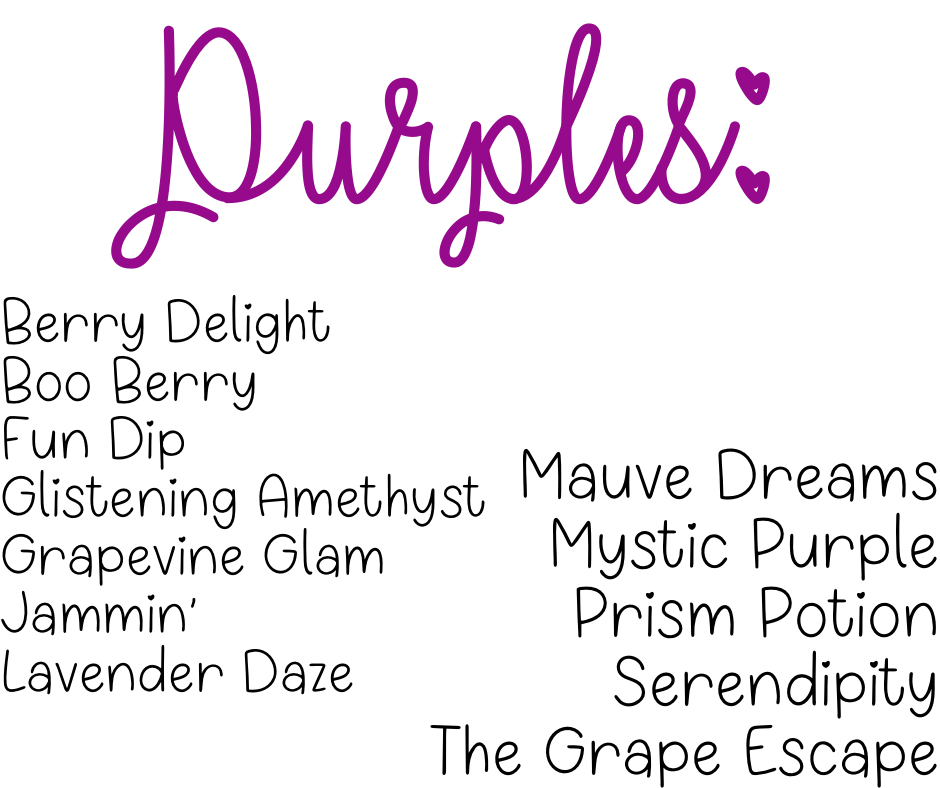 Purples:
Berry Delight
Boo Berry
Fun Dip
Glistening Amethyst
Grapevine Glam
Jammin'
Lavender Daze
Mauve Dreams
Mystic Purple
Prism Potion
Serendipity
The Grape Escape